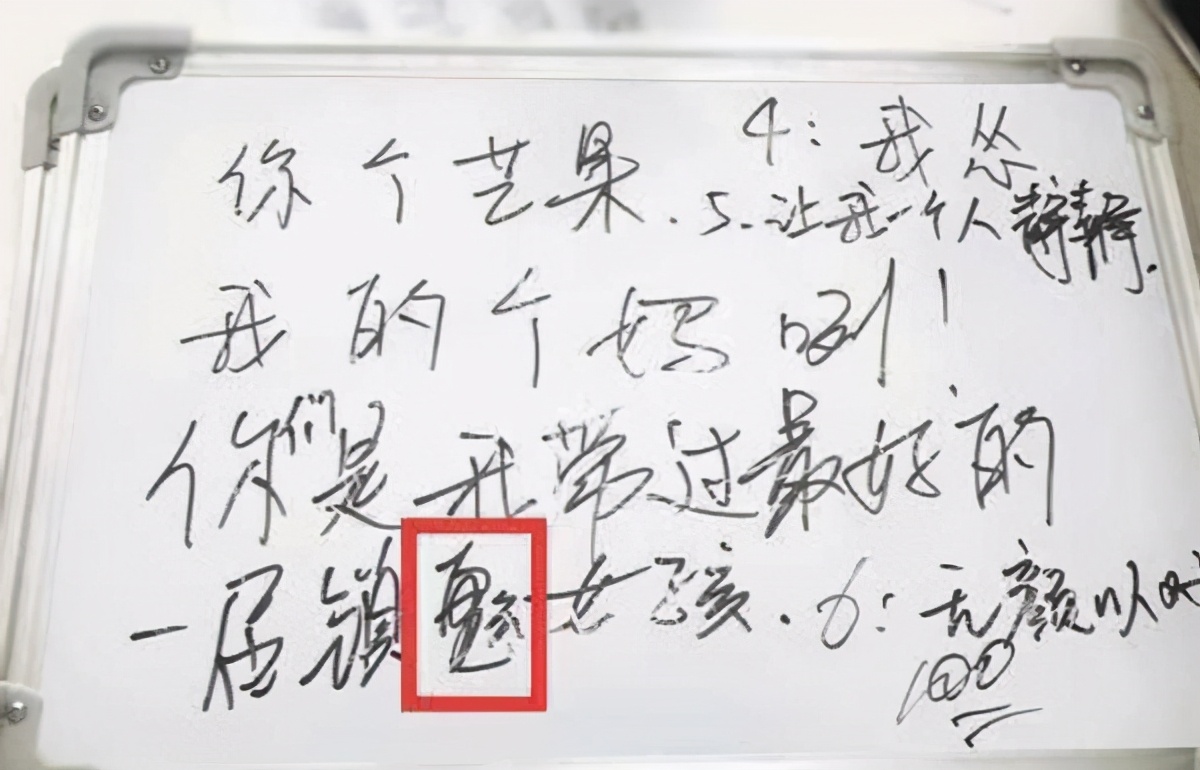 你个芒果. 4: 我怂
5. 让我一个人静静.
我的个妈咧!
你们是我带过最好的
一届镇魂女孩. 6: 无颜以对
100